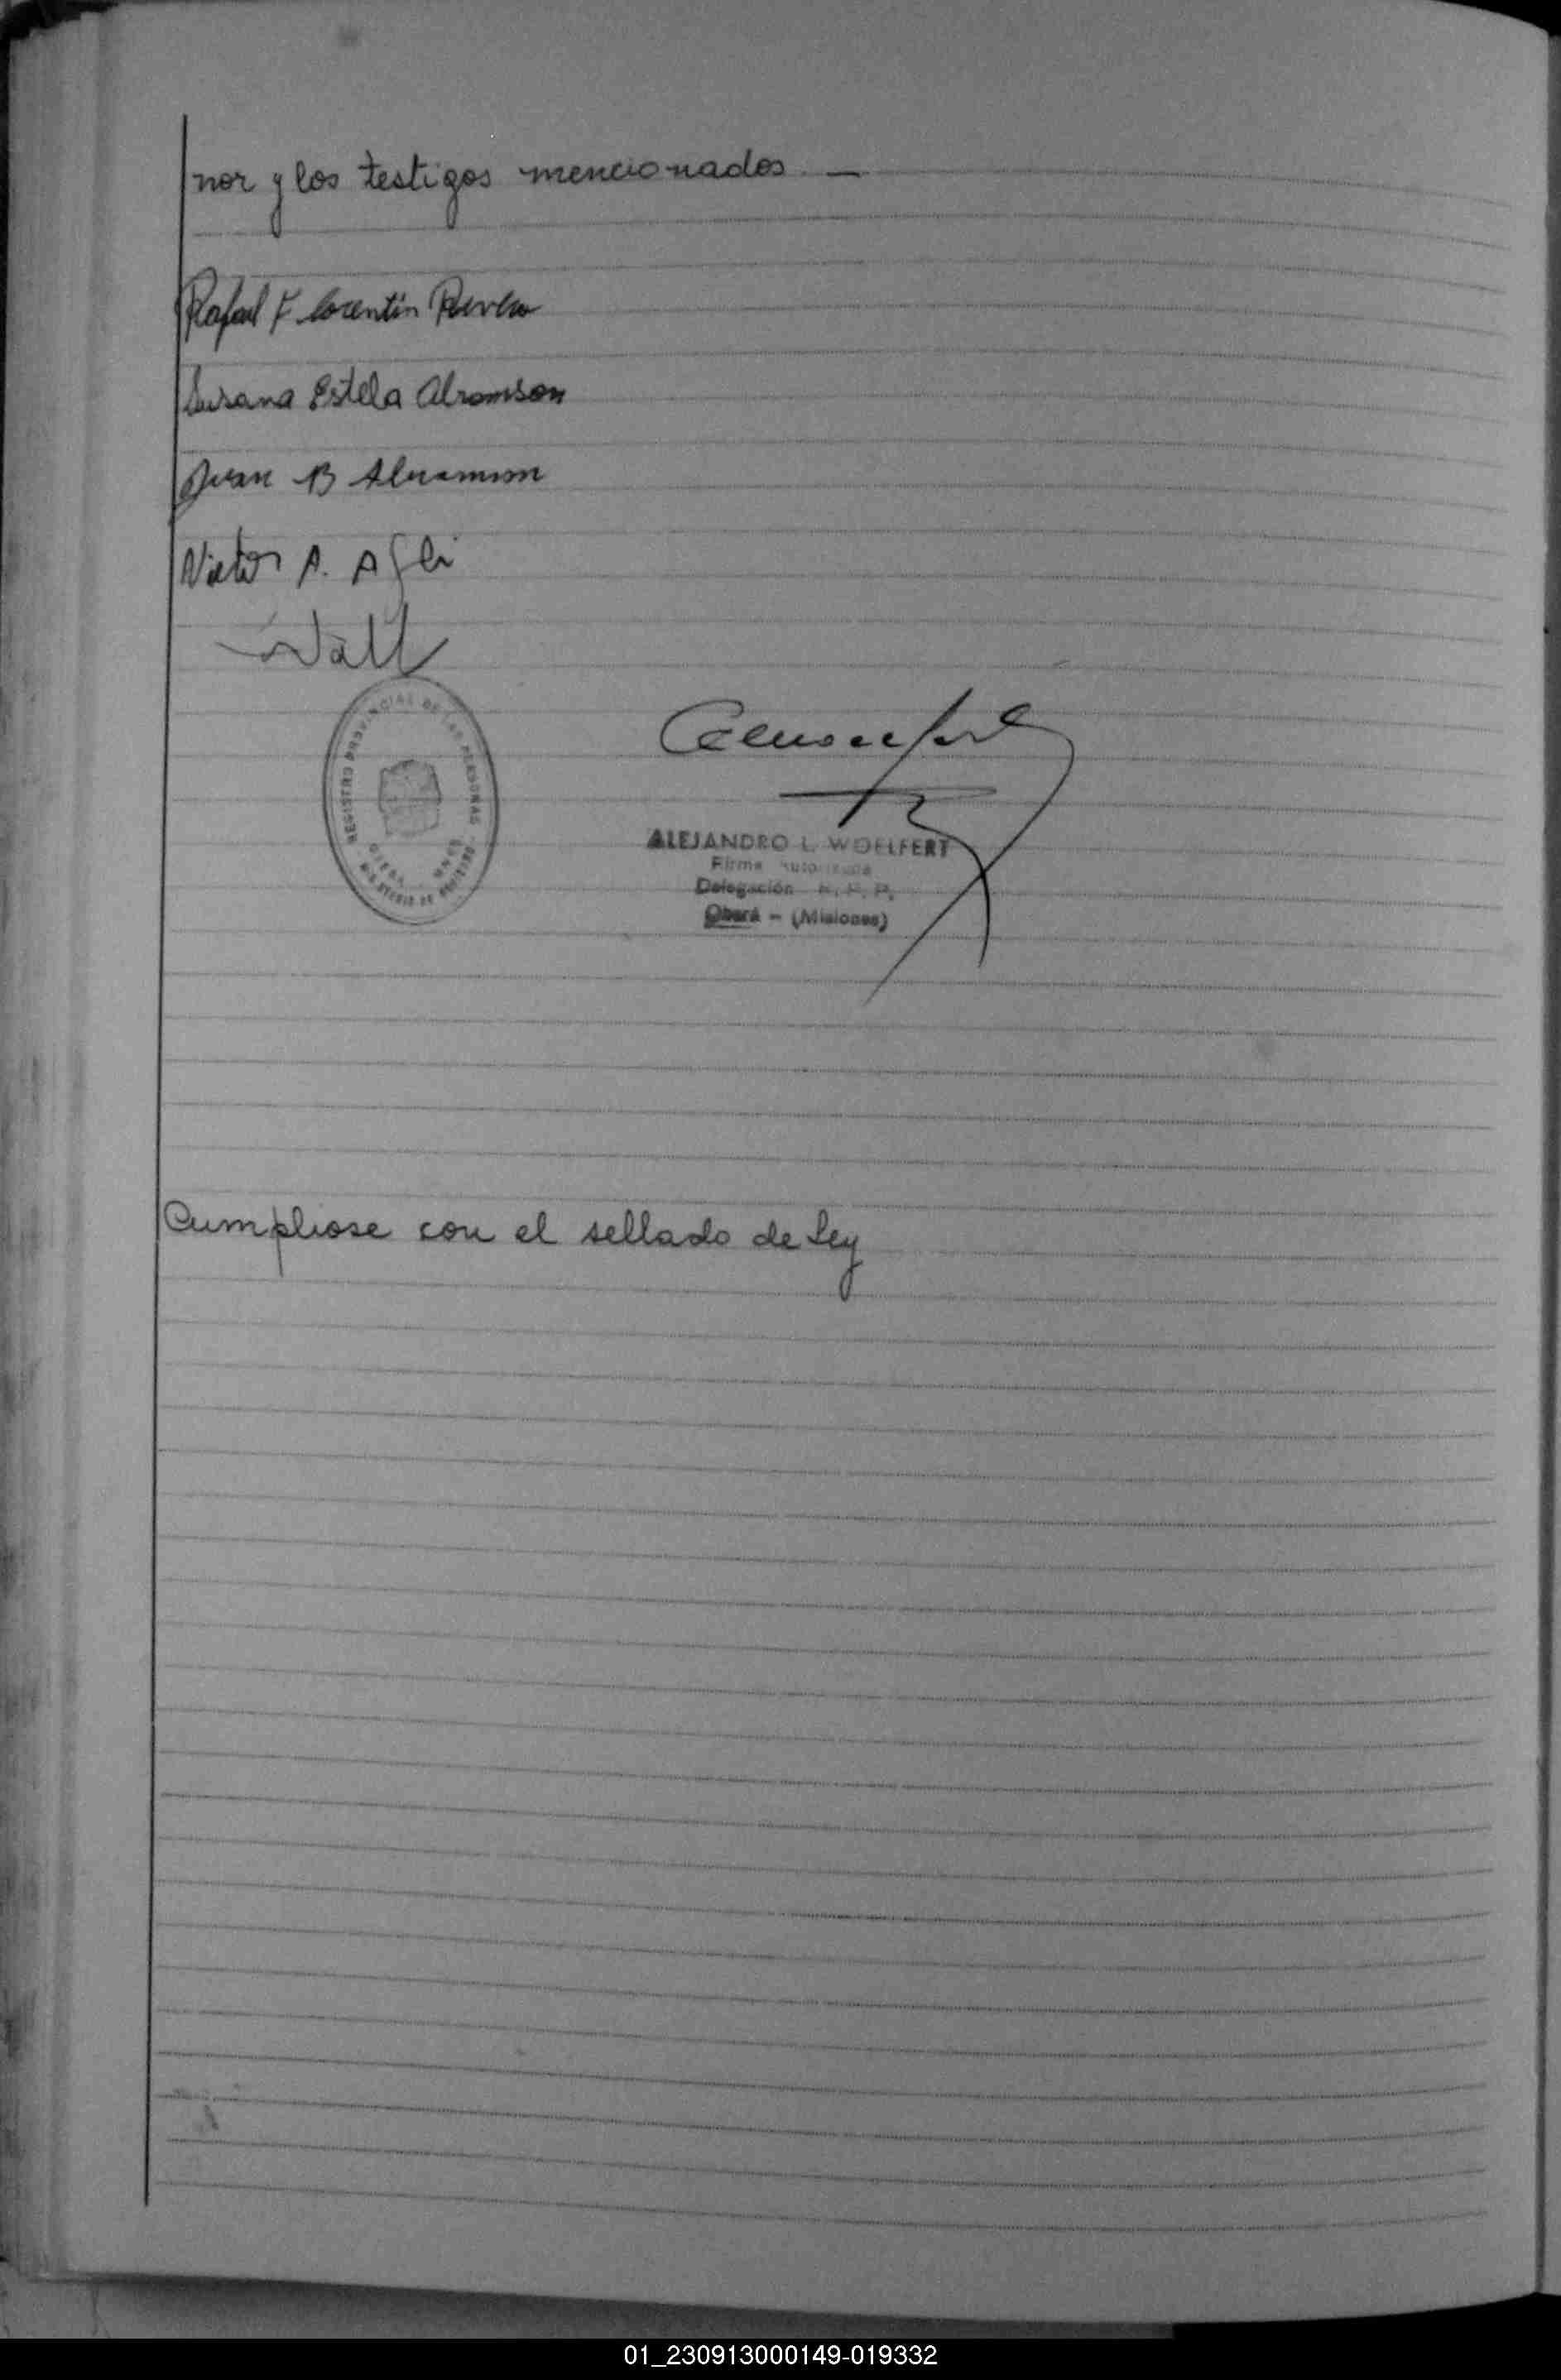 nor y los testigos mencionados. —
Rafael Florentín Rivero
Susana Estela Abramson
Juan B Abramson
Victor A.
REGISTRO PROVINCIAL DE LAS PERSONAS
ALEJANDRO L. WOELFERT
Firma Autorizada
Delegación R. P. P.
Oberá - (Misiones)
Cumpliose con el sellado de Ley
01_230913000149-019332